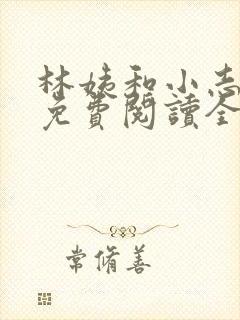 林姨和小志
免費閱讀全
常脩善